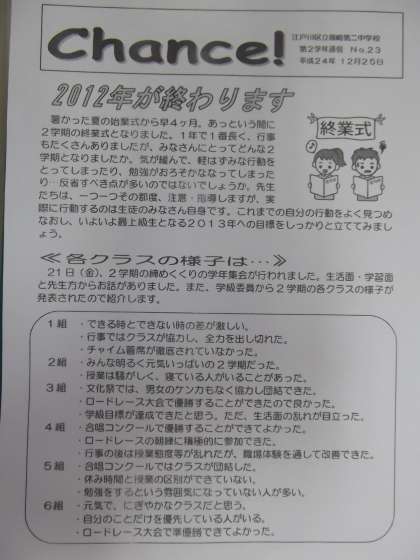 Chance!
江戸川区立篠崎第二中学校
第2学年通信 No.23
平成24年 12月25日
2012年が終わります
暑かった夏の始業式から早4ヶ月。あっという間に
2学期の終業式となりました。1年で1番長く、行事
もたくさんありましたが、みなさんにとってどんな2
学期となりましたか。気が緩んで、軽はずみな行動を
とってしまったり、勉強がおろそかなってしまった
り…反省すべき点が多いのではないでしょうか。先生
たちは、一つ一つその都度、注意・指導しますが、実
際に行動するのは生徒のみなさん自身です。これまでの自分の行動をよく見つめ
なおし、いよいよ最上級生となる2013年への目標をしっかりと立ててみまし
ょう。
終業式
≪各クラスの様子は…≫
21日(金)、2学期の締めくくりの学年集会が行われました。生活面・学習面
と先生方からお話がありました。また、学級委員から2学期の各クラスの様子が
発表されたので紹介します。
1組 ・できる時とできない時の差が激しい。
・行事ではクラスが協力し、全力を出し切れた。
・チャイム着席が徹底されていなかった。
2組 ・みんな明るく元気いっぱいの2学期だった。
・授業は騒がしく、寝ている人がいることがあった。
3組 ・文化祭では、男女のケンカもなく協力し団結できた。
・ロードレース大会で優勝することができたので良かった。
・学級目標が達成できたと思う。ただ、生活面の乱れが目立った。
4組 ・合唱コンクールで優勝することができてよかった。
・ロードレースの朝練に積極的に参加できた。
・行事の後は授業態度等が乱れたが、職場体験を通して改善できた。
5組 ・合唱コンクールではクラスが団結した。
・休み時間と授業の区別ができていない。
・勉強をするという雰囲気になっていない人が多い。
6組 ・元気で、にぎやかなクラスだと思う。
・自分のことだけを優先している人がいる。
・ロードレース大会で準優勝できてよかった。